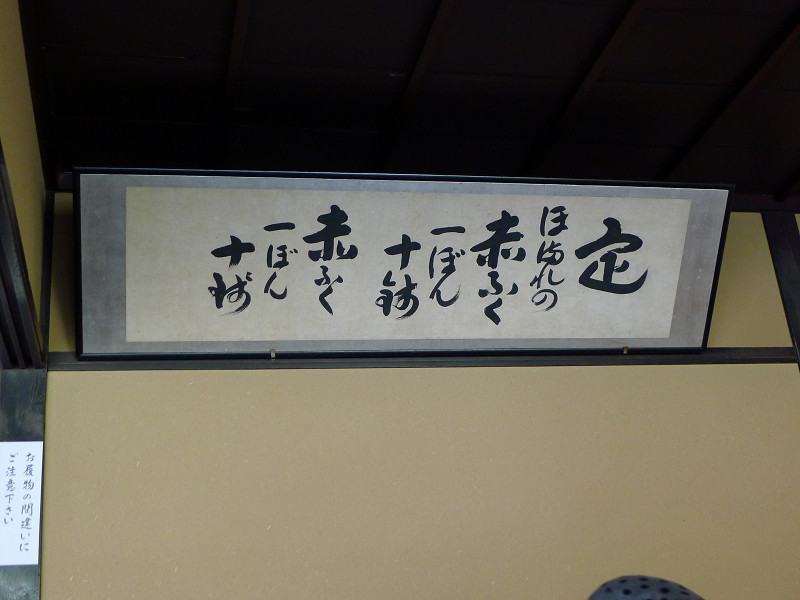 定
ほまれの
赤ふく
一ぼん
十銭
赤ふく
一ぼん
十銭
お履物の間違いに
ご注意下さい